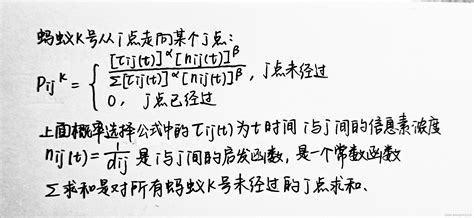 蚂蚁K号从i点走向某个j点：
[τij(t)]^α[ηij(t)]^β
Pij^k = { ─────────── , j点未经过
Σ[τij(t)]^α[ηij(t)]^β
0, j点已经过
上面概率选择公式中的τij(t)为t时间i与j间的信息素浓度
ηij(t)=1/dij 是i与j间的启发函数，是一个常数函数
Σ求和是对所有蚂蚁K号未经过的j点求和、